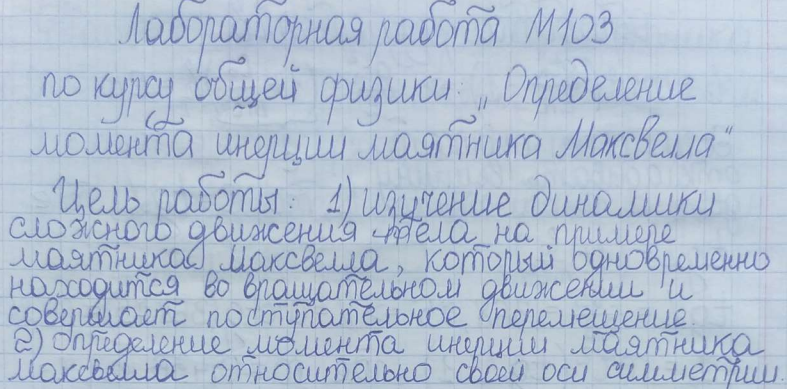 Лабораторная работа М103
по курсу общей физики: „Определение
момента инерции маятника Максвелла"
Цель работы: 1) изучение динамики
сложного движения тела на примере
маятника Максвелла, который одновременно
находится во вращательном движении и
совершает поступательное перемещение.
2) определение момента инерции маятника
максвелла относительно своей оси симметрии.